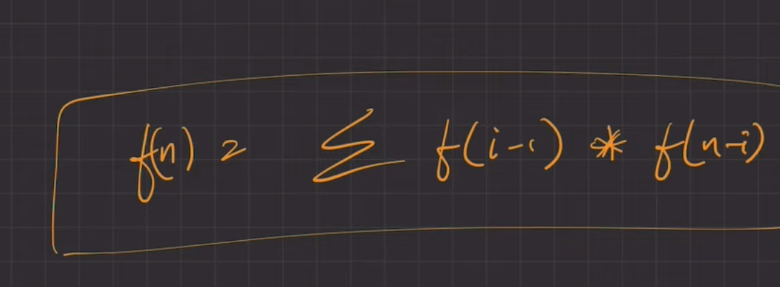 f(n) = ∑ f(i-1) * f(n-i)